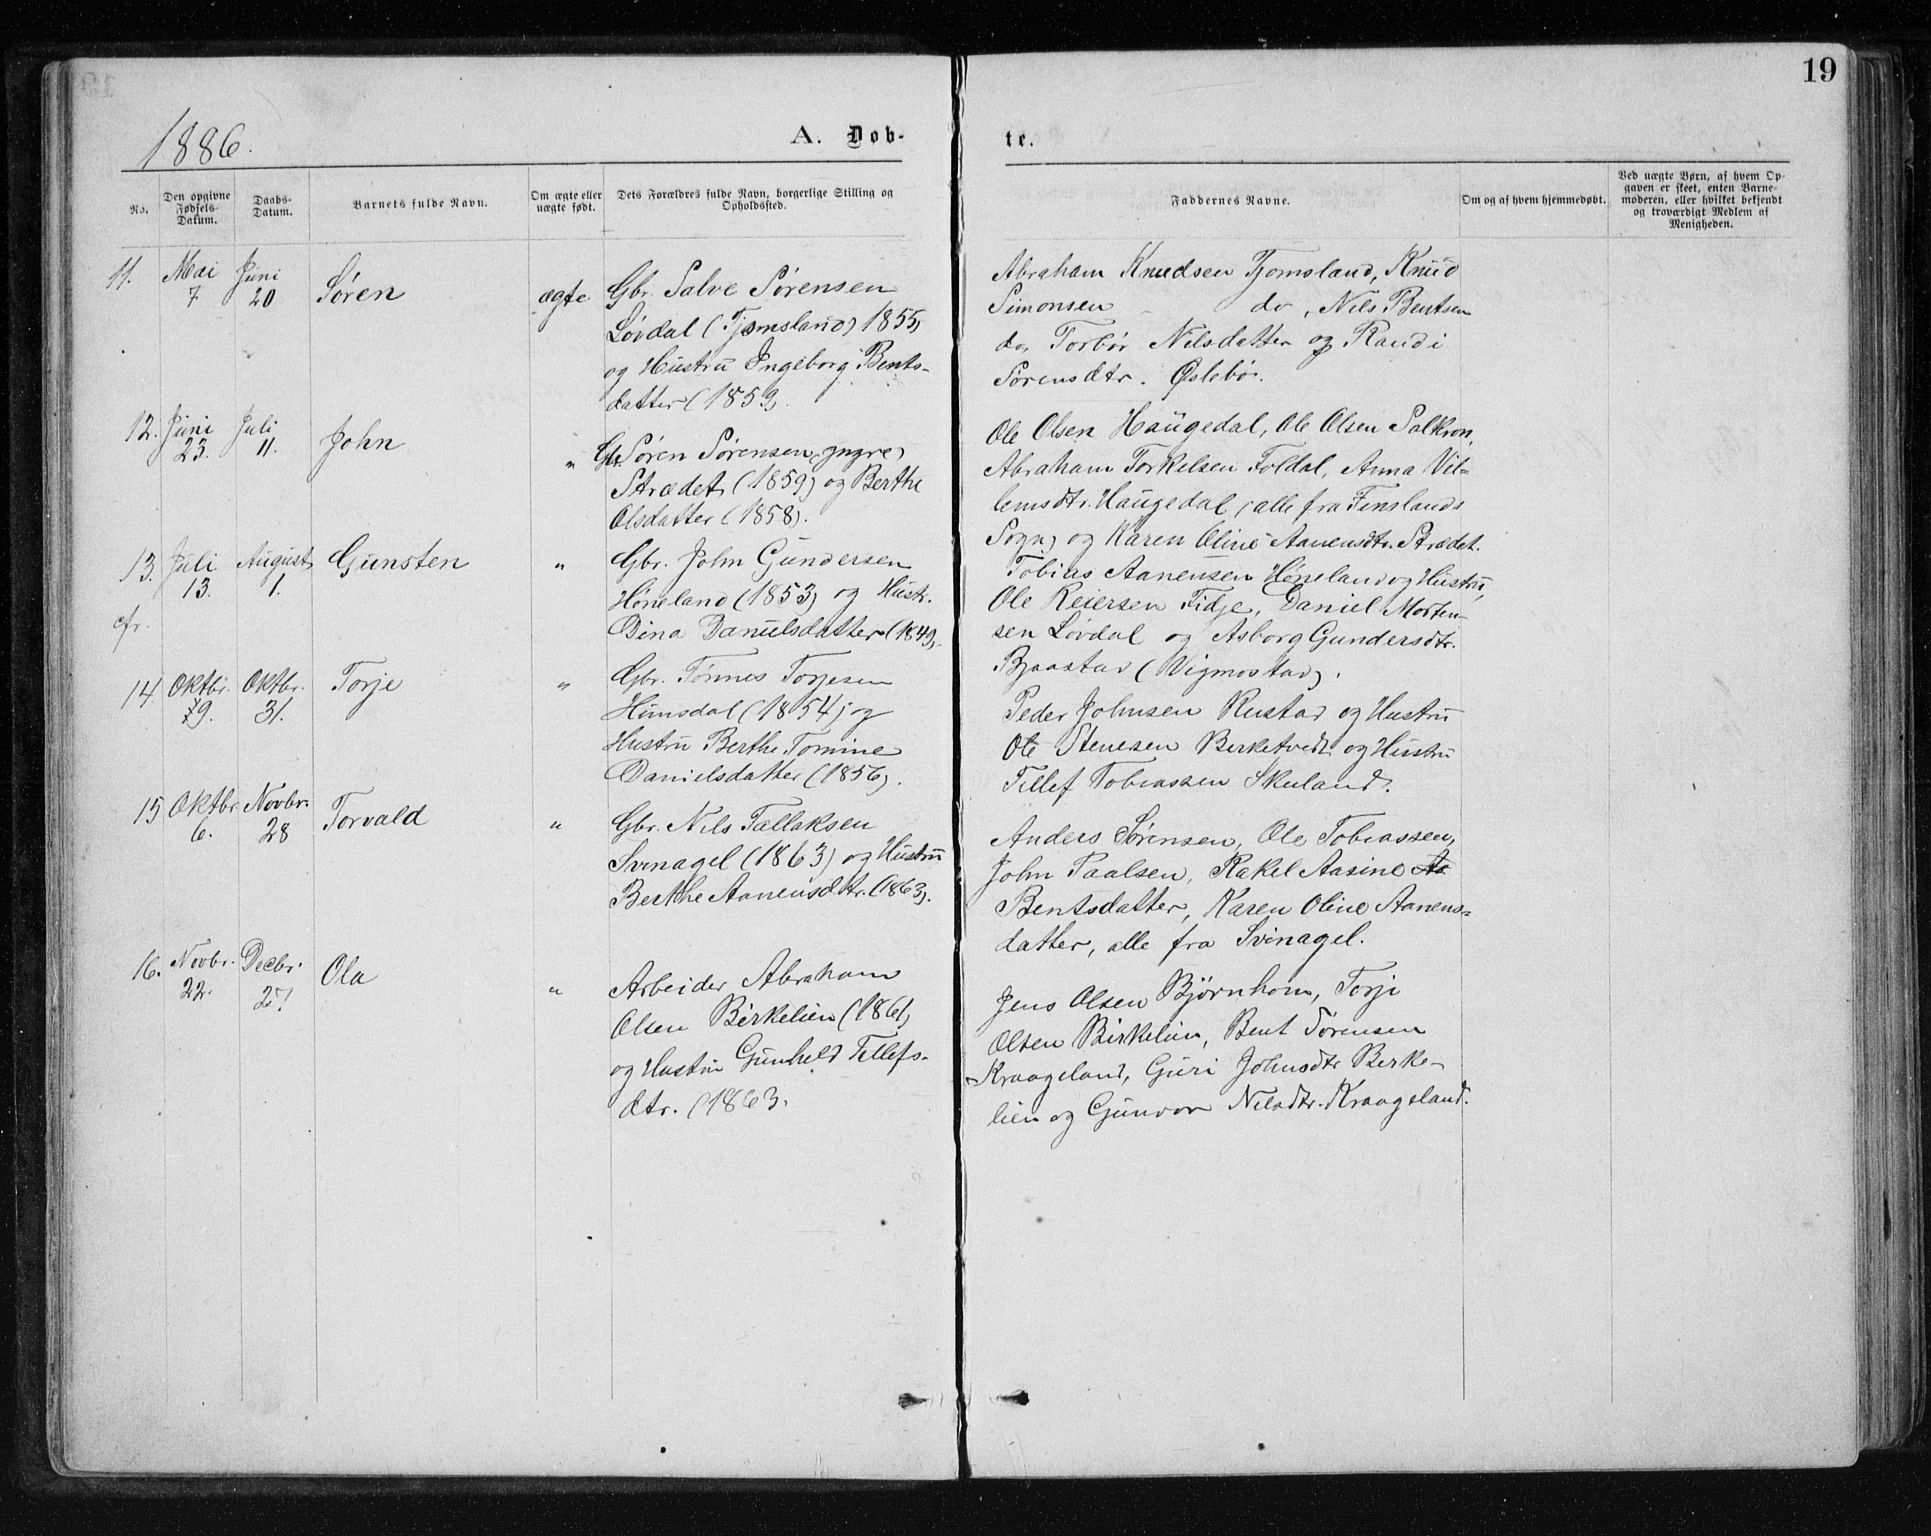 19
1886.
A. Døb-
te.
No.
Den opgivne Fødsels-Datum.
Daabs-Datum.
Barnets fulde Navn.
Om ægte eller uægte født.
Dets Forældres fulde Navn, borgerlige Stilling og Opholdssted.
Faddernes Navne.
Om og af hvem hjemmedøbt.
Ved uægte Børn, af hvem Op-
gaven er skeet, enten Barne-
moderen, eller hvilket bekjendt
og troværdigt Medlem af
Menigheden.
11. Mai 7 Juni 20 Søren ægte
Gbr. Salve Sørensen
Løvdal (Tjomsland) 1855,
og Hustru Ingeborg Bents-
datter (1859).
Abraham Knudsen Tjomsland, Knud
Simonsen do, Nils Bentsen
do, Torbør Nilsdatter og Randi
Sørensdtr. Øslebø.
12. Juni 23. Juli 11. John "
Gbr. Søren Sørensen, yngre,
Strædet (1859) og Berthe
Olsdatter (1858).
Ole Olsen Haugedal, Ole Olsen Salkron,
Abraham Torkelsen Foldal, Anna Vil-
lemsdtr. Haugedal, alle fra Finslands
Sogn, og Karen Oline Aanensdtr. Strædet.
13. Juli 13. August 1. Gunsten "
cfr.
Gbr. John Gundersen
Høneland (1853) og Hustr.
Dina Danielsdatter (1849).
Tobias Aanensen Høneland og Hustru,
Ole Reiersen Fidje, Daniel Morten-
sen Løvdal og Asborg Gundersdtr.
Bjaastad (Vigmostad).
14. Oktbr. 9. Oktbr. 31. Torje "
Gbr. Tønnes Torjesen
Homsdal (1854) og
Hustru Berthe Tomine
Danielsdatter (1856).
Peder Johnsen Rustad og Hustru
Ole Stenersen Berketvedt og Hustru
Tellef Tobiassen Skuland.
15 Oktbr. 6. Novbr. 28 Torvald "
Gbr. Nils Tallaksen
Svinagel (1863) og Hustru
Berthe Aanensdtr. (1863).
Anders Sørensen, Ole Tobiassen,
John Paalsen, Rakel Aasine
Bentsdatter, Karen Oline Aanens-
datter, alle fra Svinagel.
16. Novbr. 22. Decbr. 27 Ola "
Arbeider Abraham
Olsen Birkelien (1861)
og Hustru Gunheld Tellefs-
dtr. (1863.
Jens Olsen Bjørnhom, Torje
Olsen Birkelien, Bent Sørensen
Kraageland, Guri Johnsdtr Berke-
lien og Gunvor Nilsdtr. Kraageland.